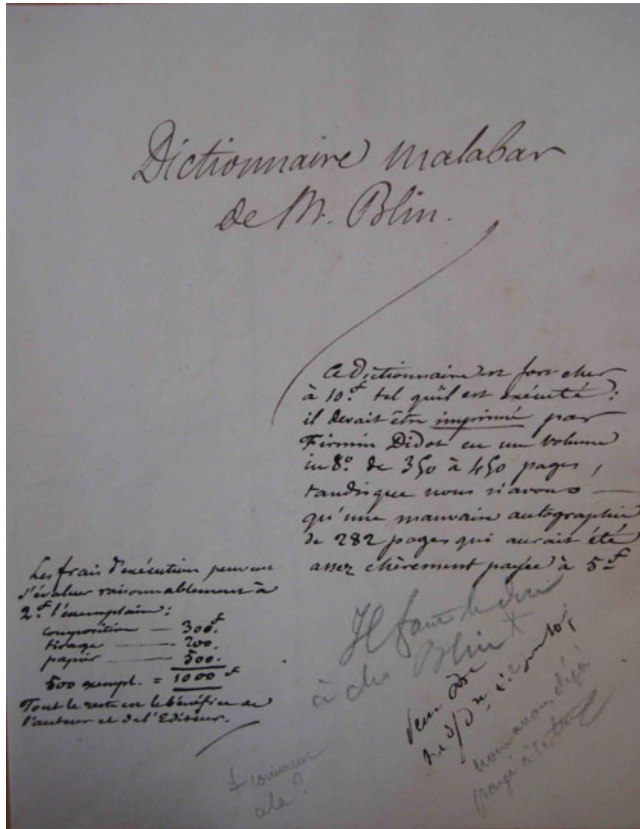 Dictionnaire malabar
de Mr. Blin.
Ce Dictionnaire est fort cher
à 10f. tel qu'il est exécuté :
il devait être imprimé par
Firmin Didot en un volume
in 8º. de 350 à 450 pages,
tandis que nous n'avons —
qu'une mauvaise autographie
de 282 pages qui aurait été
assez chèrement payée à 5f
Les frais d'exécution peuvent
s'évaluer raisonnablement à
2f. l'exemplaire :
composition — 300.f
tirage — 200.
papier — 500.
500 exempl. = 1000 f
Tout le reste est le bénéfice de
l'auteur et de l'Editeur.
Il faut le dire
à Blin
nous avons déjà
payé à